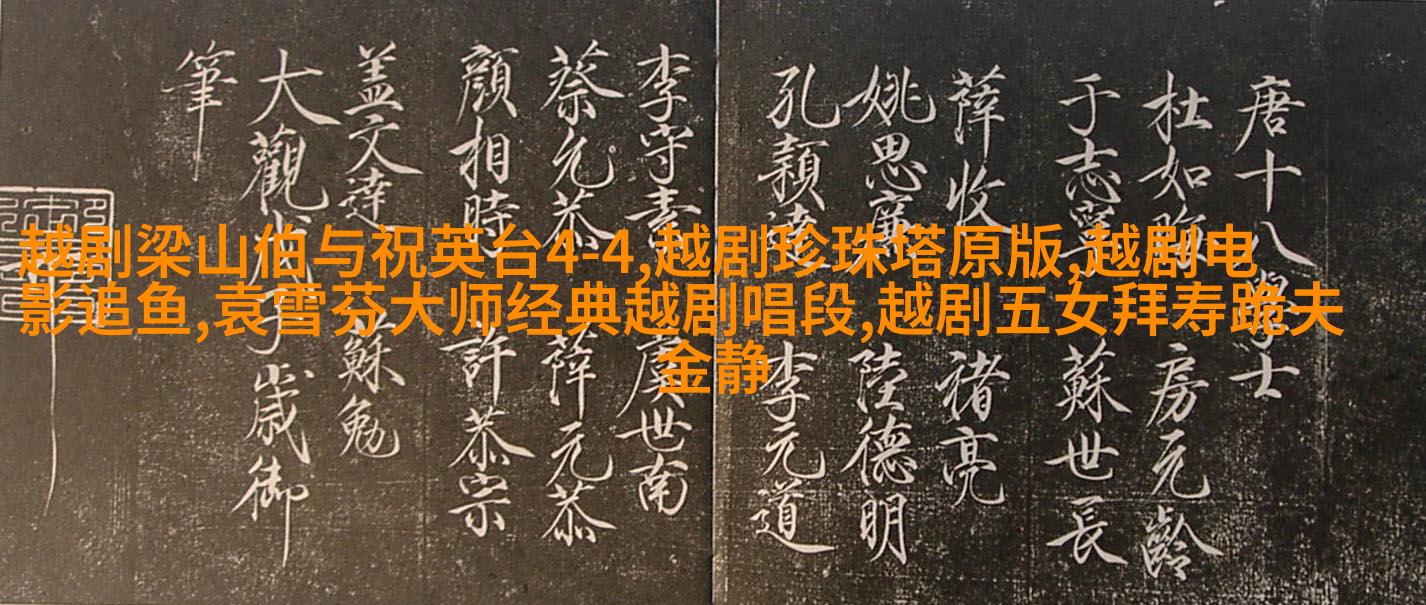 越剧梁山伯与祝英台4-4,越剧珍珠塔原版,越剧电
影追鱼,袁雪芬大师经典越剧唱段,越剧五女拜寿跪夫
金静
唐十八學士
杜如晦 房元齡
于志寧 蘇世長
薛收 褚亮
姚思廉 陸德明
孔穎達 李元道
李守素 虞世南
蔡允恭 薛元恭
顏相時 許恭宗
盖文達 蘇勉
大觀戊子歲御
筆